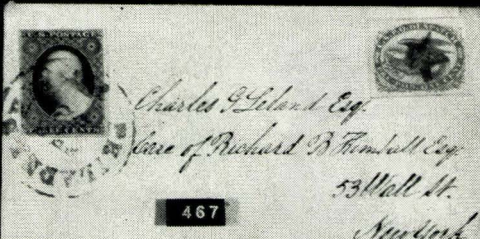 U.S. POSTAGE
Charles G Leland Esq.
Care of Richard B Kimball Esq.
53 Wall St.
New York
467